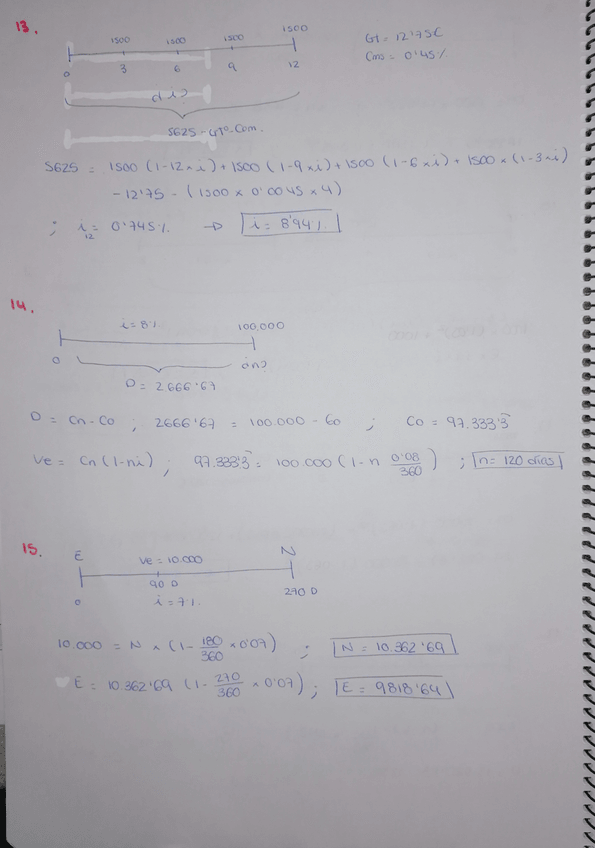 13.
1500 1500 1500 1500
0 3 6 9 12
Gt = 12'75€
Com = 0'45%
5625 - Gto - Com.
5625 = 1500 (1-12×i) + 1500 (1-9×i) + 1500 (1-6×i) + 1500 × (1-3×i)
-12'75 - (1500 × 0'0045 × 4)
; i12 = 0'745%. → i = 8'94%.
14.
i = 8% 100.000
0 año
D = 2666'67
D = Cn - Co ; 2666'67 = 100.000 - Co ; Co = 97.333'3
Ve = Cn (1-ni) ; 97.333'3 = 100.000 (1-n 0'08/360) ; n = 120 días
15.
E Ve = 10.000 N
90 D
0 i = 7%. 270 D
10.000 = N × (1- 180/360 × 0'07) ; N = 10.362'69
E = 10.362'69 (1- 270/360 × 0'07) ; E = 9818'64